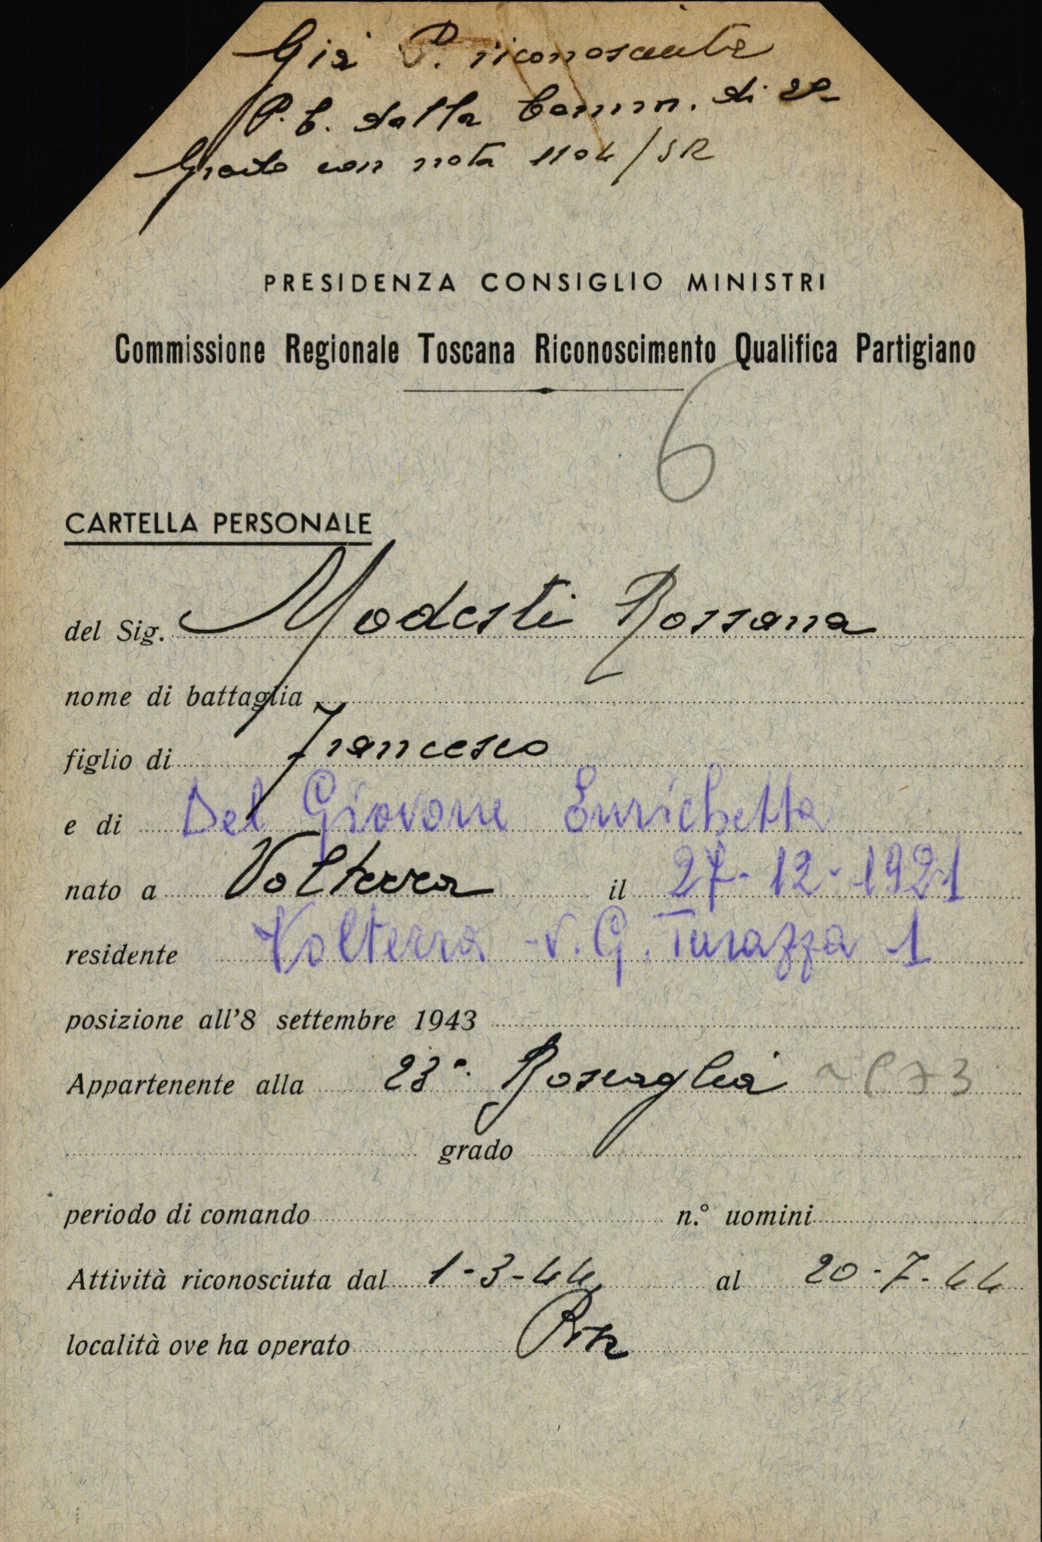 Già P. riconosciuta
P.C. dalla Comm. di 2°
Grado con nota 1104/SR
PRESIDENZA CONSIGLIO MINISTRI
Commissione Regionale Toscana Riconoscimento Qualifica Partigiano
6
CARTELLA PERSONALE
del Sig. Modesti Rossana
nome di battaglia
figlio di Francesco
e di Del Giovane Enrichetta
nato a Volterra il 27-12-1921
residente Volterra - V. G. Turazza 1
posizione all'8 settembre 1943
Appartenente alla 23ª Boscaglia
grado
periodo di comando n.° uomini
Attività riconosciuta dal 1-3-44 al 20-7-44
località ove ha operato